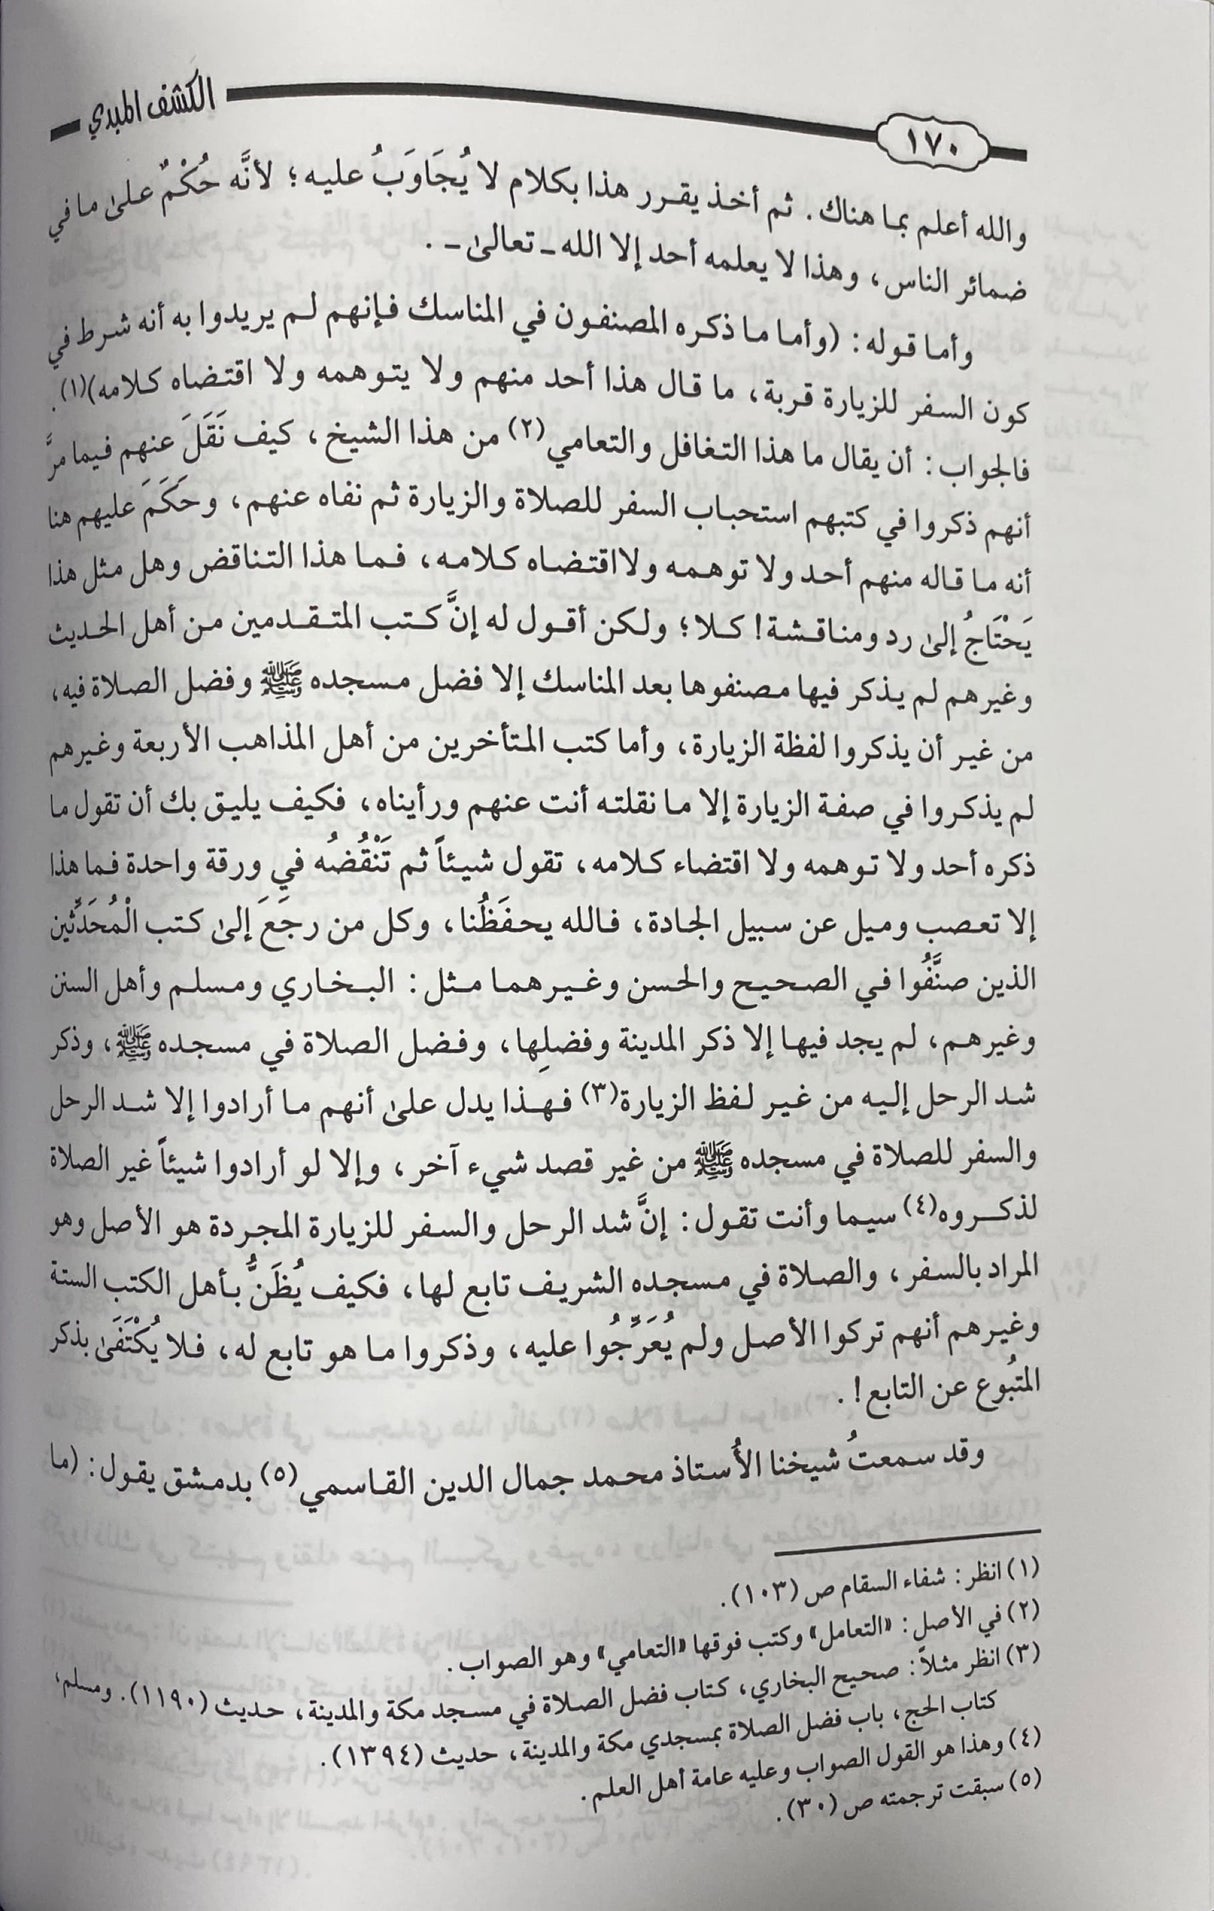 ١٧٠
الكشف المبدي
والله أعلم بما هناك. ثم أخذ يقرر هذا بكلام لا يُجَاوَبُ عليه؛ لأنَّه حُكْمٌ على ما في
ضمائر الناس، وهذا لا يعلمه أحد إلا الله ـ تعالى ـ .
وأما قوله: (وأما ما ذكره المصنفون في المناسك فإنهم لم يريدوا به أنه شرط في
كون السفر للزيارة قربة، ما قال هذا أحد منهم ولا يتوهمه ولا اقتضاه كلامه)(١).
فالجواب: أن يقال ما هذا التغافل والتعامي(٢) من هذا الشيخ، كيف نَقَلَ عنهم فيما مرَّ
أنهم ذكروا في كتبهم استحباب السفر للصلاة والزيارة ثم نفاه عنهم، وحَكَمَ عليهم هنا
أنه ما قاله منهم أحد ولا توهمه ولااقتضاه كلامه، فما هذا التناقض وهل مثل هذا
يَحْتَاجُ إلى رد ومناقشة! كلا؛ ولكن أقول له إنَّ كتب المتقدمين من أهل الحديث
وغيرهم لم يذكر فيها مصنفوها بعد المناسك إلا فضل مسجده ﷺ وفضل الصلاة فيه،
من غير أن يذكروا لفظة الزيارة، وأما كتب المتأخرين من أهل المذاهب الأربعة وغيرهم
لم يذكروا في صفة الزيارة إلا ما نقلته أنت عنهم ورأيناه، فكيف يليق بك أن تقول ما
ذكره أحد ولا توهمه ولا اقتضاء كلامه، تقول شيئاً ثم تَنْقُضُه في ورقة واحدة فما هذا
إلا تعصب وميل عن سبيل الجادة، فالله يحفَظُنا، وكل من رجَعَ إلى كتب الْمُحَدِّثين
الذين صنَّفُوا في الصحيح والحسن وغيرهما مثل: البخاري ومسلم وأهل السنن
وغيرهم، لم يجد فيها إلا ذكر المدينة وفضلِها، وفضل الصلاة في مسجده ﷺ، وذكر
شد الرحل إليه من غير لفظ الزيارة(٣) فهذا يدل على أنهم ما أرادوا إلا شد الرحل
والسفر للصلاة في مسجده ﷺ من غير قصد شيء آخر، وإلا لو أرادوا شيئاً غير الصلاة
لذكروه(٤) سيما وأنت تقول: إنَّ شد الرحل والسفر للزيارة المجردة هو الأصل وهو
المراد بالسفر، والصلاة في مسجده الشريف تابع لها، فكيف يُظَنُّ بأهل الكتب الستة
وغيرهم أنهم تركوا الأصل ولم يُعَرِّجُوا عليه، وذكروا ما هو تابع له، فلا يُكْتَفَى بذكر
المتبُوع عن التابع! .
وقد سمعتُ شيخنا الأُستاذ محمد جمال الدين القاسمي(٥) بدمشق يقول: (ما
(١) انظر: شفاء السقام ص (١٠٣).
(٢) في الأصل: «التعامل» وكتب فوقها «التعامي» وهو الصواب.
(٣) انظر مثلاً: صحيح البخاري، كتاب فضل الصلاة في مسجد مكة والمدينة، حديث (١١٩٠). ومسلم،
كتاب الحج، باب فضل الصلاة بمسجدي مكة والمدينة، حديث (١٣٩٤).
(٤) وهذا هو القول الصواب وعليه عامة أهل العلم.
(٥) سبقت ترجمته ص (٣٠).